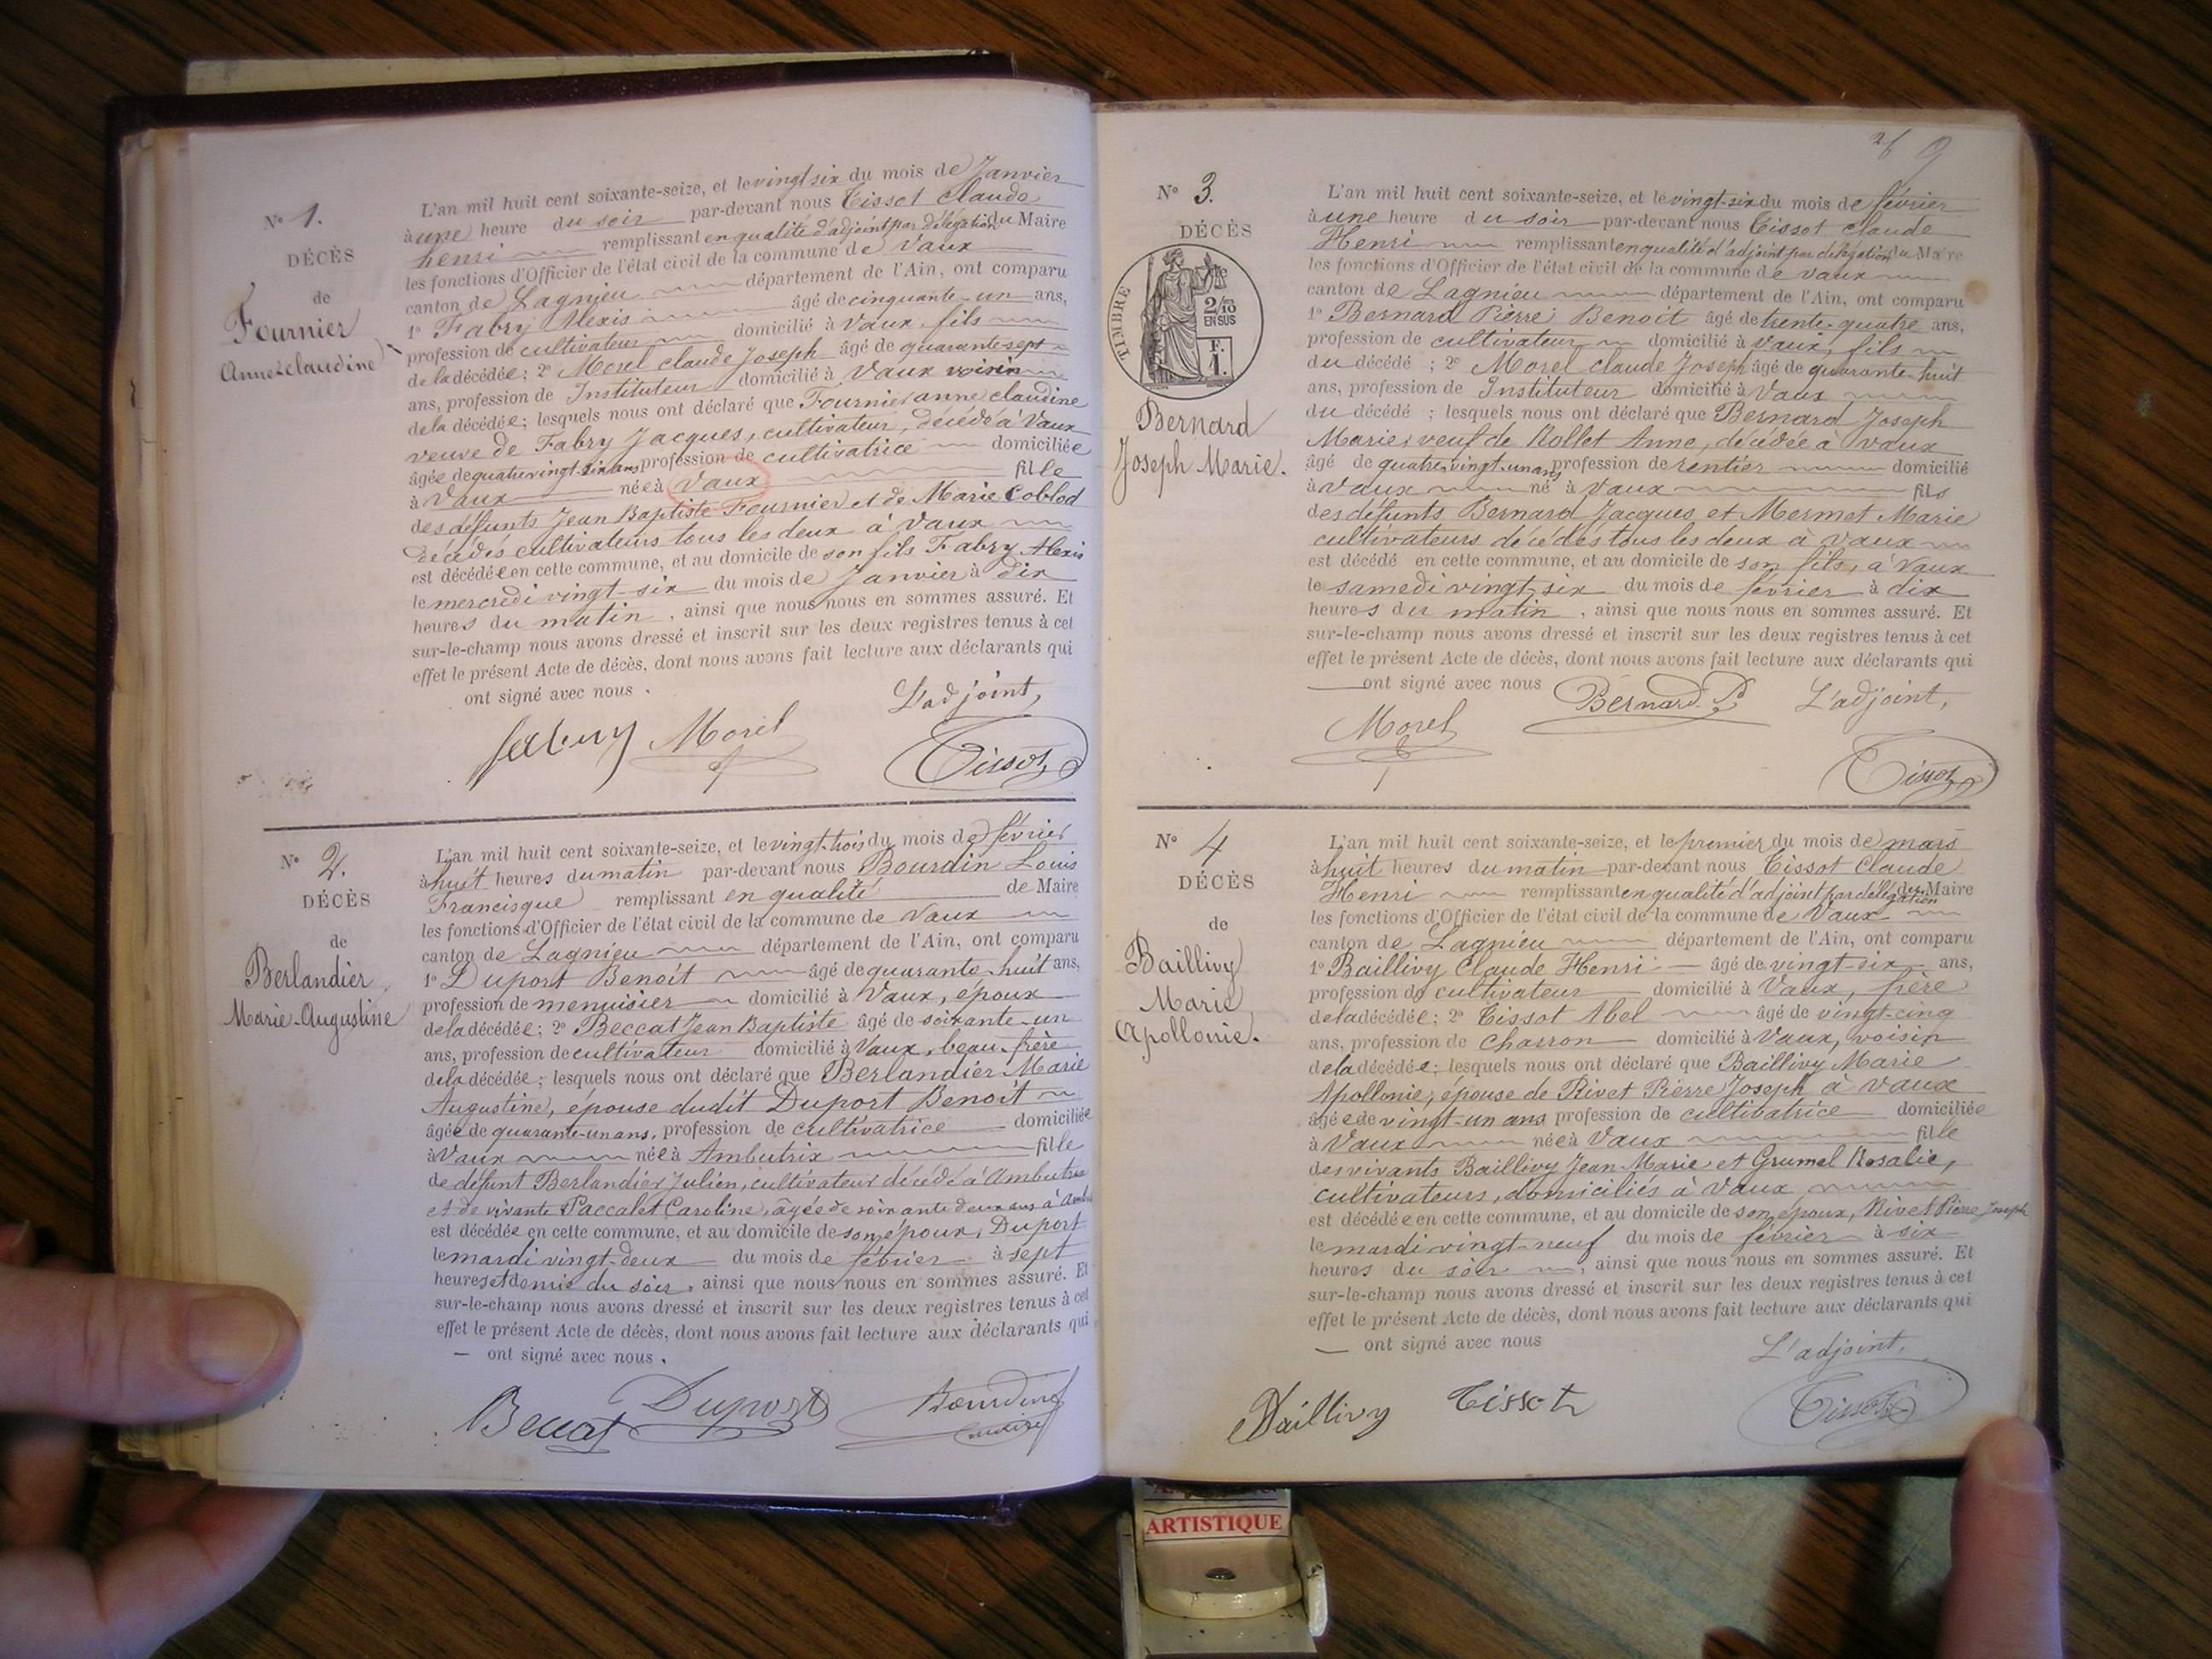 N° 1.
DÉCÈS
de
Fournier
Anne claudine
L'an mil huit cent soixante-seize, et le vingt six du mois de Janvier
à une heure du soir par-devant nous Tissot Claude
henri remplissant en qualité d'adjoint par délégation du Maire
les fonctions d'Officier de l'état civil de la commune de Vaux
canton de Lagnieu département de l'Ain, ont comparu
1° Fabry Alexis âgé de cinquante-un ans,
profession de cultivateur domicilié à Vaux, fils
de la décédée; 2° Morel claude Joseph âgé de quarante-sept
ans, profession de Instituteur domicilié à Vaux voisin
de la décédée; lesquels nous ont déclaré que Fournier anne claudine
veuve de Fabry Jacques, cultivateur, décédé à Vaux
âgée de quatre vingt-dix ans profession de cultivatrice domiciliée
à Vaux née à Vaux fille
des défunts Jean Baptiste Fournier et de Marie Coblod
décédés cultivateurs tous les deux à Vaux
est décédée en cette commune, et au domicile de son fils Fabry Alexis
le mercredi vingt-six du mois de Janvier à dix
heures du matin, ainsi que nous nous en sommes assuré. Et
sur-le-champ nous avons dressé et inscrit sur les deux registres tenus à cet
effet le présent Acte de décès, dont nous avons fait lecture aux déclarants qui
ont signé avec nous.
L'adjoint,
fabry Morel Tissot
N° 2.
DÉCÈS
de
Berlandier
Marie-Augustine
L'an mil huit cent soixante-seize, et le vingt-trois du mois de février
à huit heures du matin par-devant nous Bourdin Louis
Francisque remplissant en qualité de Maire
les fonctions d'Officier de l'état civil de la commune de Vaux
canton de Lagnieu département de l'Ain, ont comparu
1° Duport Benoit âgé de quarante-huit ans,
profession de menuisier domicilié à Vaux, époux
de la décédée; 2° Beccat Jean Baptiste âgé de soixante-un
ans, profession de cultivateur domicilié à Vaux, beau-frère
de la décédée; lesquels nous ont déclaré que Berlandier Marie
Augustine, épouse dudit Duport Benoit
âgée de quarante-un ans, profession de cultivatrice domiciliée
à Vaux née à Ambutrix fille
de défunt Berlandier Julien, cultivateur décédé à Ambutrix
et de vivante Paccalet Caroline, âgée de soixante deux ans à
est décédée en cette commune, et au domicile de son époux, Duport
le mardi vingt-deux du mois de février à sept
heures et demie du soir, ainsi que nous nous en sommes assuré. Et
sur-le-champ nous avons dressé et inscrit sur les deux registres tenus à cet
effet le présent Acte de décès, dont nous avons fait lecture aux déclarants qui
ont signé avec nous.
Beccat Duport Bourdin
maire
9
N° 3.
DÉCÈS
TIMBRE
2/10
EN SUS
F.
1.
Bernard
Joseph Marie.
L'an mil huit cent soixante-seize, et le vingt-six du mois de février
à une heure du soir par-devant nous Tissot Claude
Henri remplissant en qualité d'adjoint par délégation du Maire
les fonctions d'Officier de l'état civil de la commune de Vaux
canton de Lagnieu département de l'Ain, ont comparu
1° Bernard Pierre Benoit âgé de trente-quatre ans,
profession de cultivateur domicilié à Vaux, fils
du décédé ; 2° Morel claude Joseph âgé de quarante-huit
ans, profession de Instituteur domicilié à Vaux
du décédé ; lesquels nous ont déclaré que Bernard Joseph
Marie, veuf de Rollet Anne, décédée à Vaux
âgé de quatre-vingt-un ans profession de rentier domicilié
à Vaux né à Vaux fils
des défunts Bernard Jacques et Mermet Marie
cultivateurs décédés tous les deux à Vaux
est décédé en cette commune, et au domicile de son fils, à Vaux
le samedi vingt-six du mois de février à dix
heures du matin, ainsi que nous nous en sommes assuré. Et
sur-le-champ nous avons dressé et inscrit sur les deux registres tenus à cet
effet le présent Acte de décès, dont nous avons fait lecture aux déclarants qui
ont signé avec nous
Morel Bernard P. L'adjoint,
Tissot
N° 4
DÉCÈS
de
Baillivy
Marie
Apollonie.
L'an mil huit cent soixante-seize, et le premier du mois de mars
à huit heures du matin par-devant nous Tissot Claude
Henri remplissant en qualité d'adjoint par délégation du Maire
les fonctions d'Officier de l'état civil de la commune de Vaux
canton de Lagnieu département de l'Ain, ont comparu
1° Baillivy Claude Henri âgé de vingt-six ans,
profession de cultivateur domicilié à Vaux, frère
de la décédée; 2° Tissot Abel âgé de vingt-cinq
ans, profession de charron domicilié à Vaux, voisin
de la décédée; lesquels nous ont déclaré que Baillivy Marie
Apollonie, épouse de Rivet Pierre Joseph à Vaux
âgée de vingt-un ans profession de cultivatrice domiciliée
à Vaux née à Vaux fille
des vivants Baillivy Jean Marie et Grumel Rosalie,
cultivateurs, domiciliés à Vaux
est décédée en cette commune, et au domicile de son époux, Rivet Pierre Joseph
le mardi vingt-neuf du mois de février à six
heures du soir, ainsi que nous nous en sommes assuré. Et
sur-le-champ nous avons dressé et inscrit sur les deux registres tenus à cet
effet le présent Acte de décès, dont nous avons fait lecture aux déclarants qui
ont signé avec nous
L'adjoint,
Baillivy Tissot Tissot
ARTISTIQUE